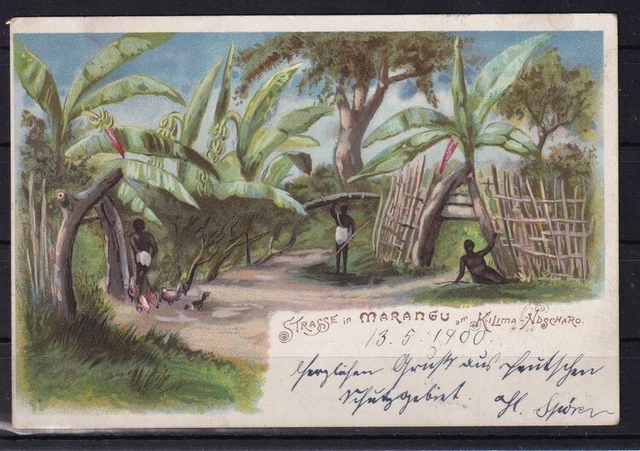 STRASSE in MARANGU am KILIMA-NDSCHARO.
13.5.1900.
Herzlichen Gruß aus Deutschen
Schutzgebiet.